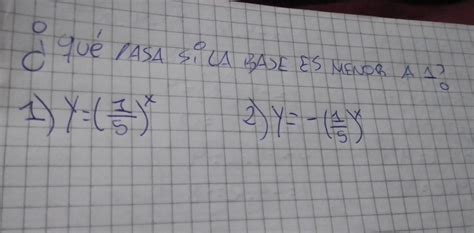 ¿Qué PASA si LA BASE ES MENOR A 1?
1) y=(1/5)^x 2) y=-(1/5)^x